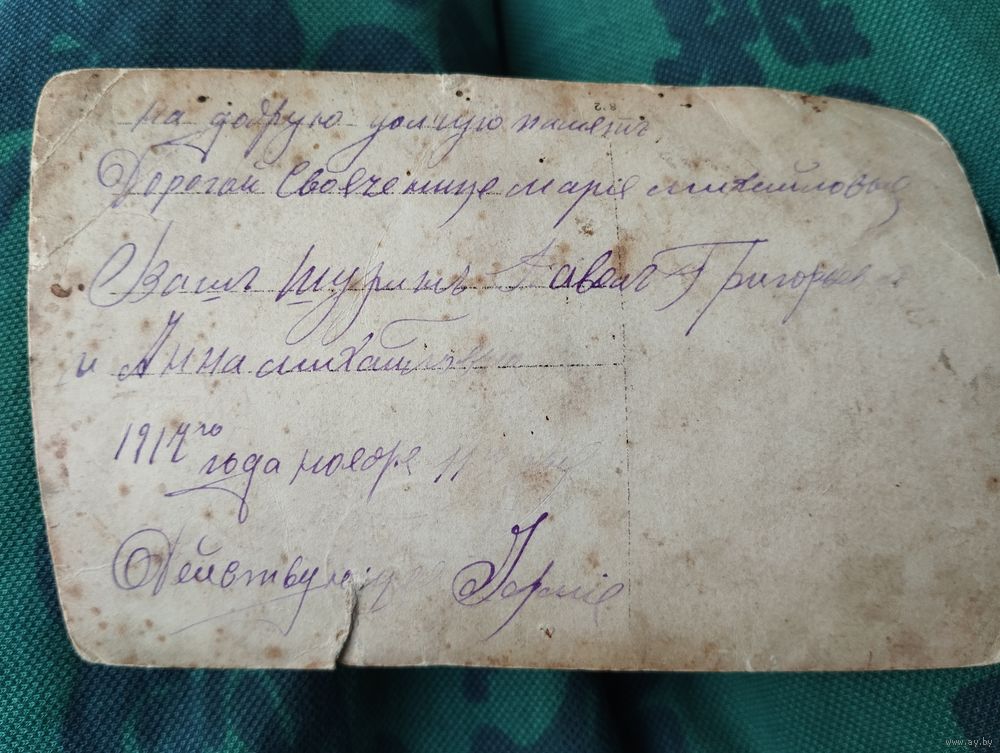 на добрую долгую память
Дорогой Свояченице марiе михайловне
Вашъ шуринъ Павелъ Григорьев
и Анна михайловна
1917го года ноября 11
Действующая Армiя
www.ay.by